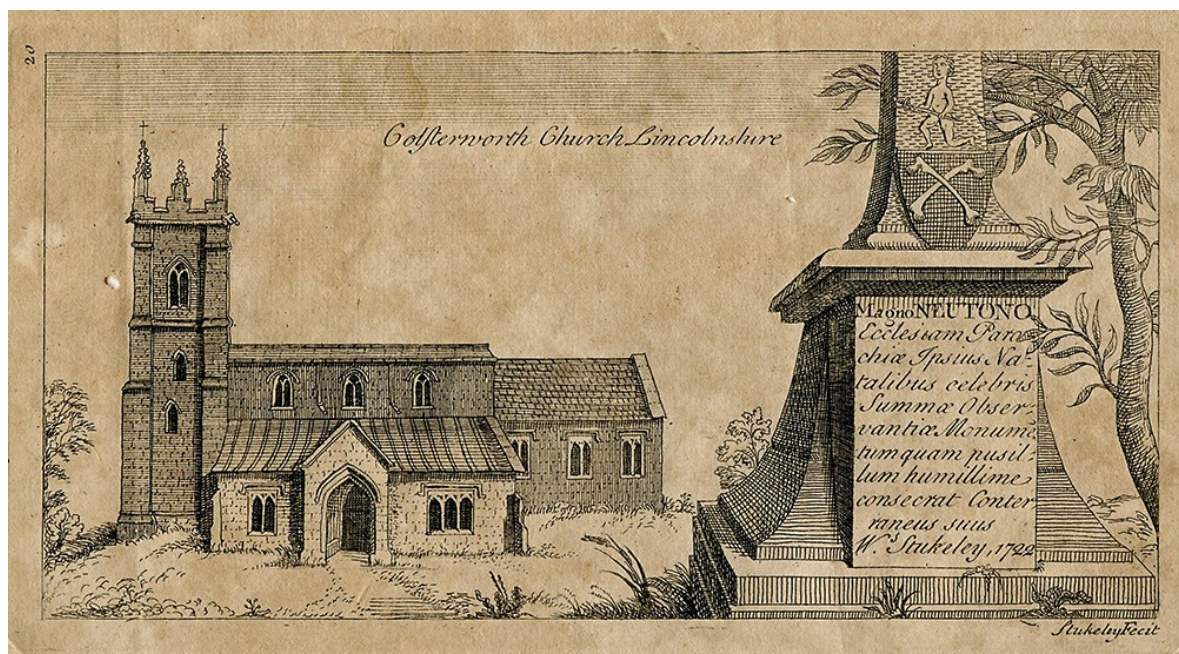 20
Colsterworth Church Lincolnshire
Magno NEUTONO
Ecclesiam Paro-
chiæ Ipsius Na-
talibus celebris
Summæ Obser-
vantiæ Monumē
tum quam pusil-
lum humillime
consecrat Conter
raneus suus
W. Stukeley, 1722
Stukeley Fecit